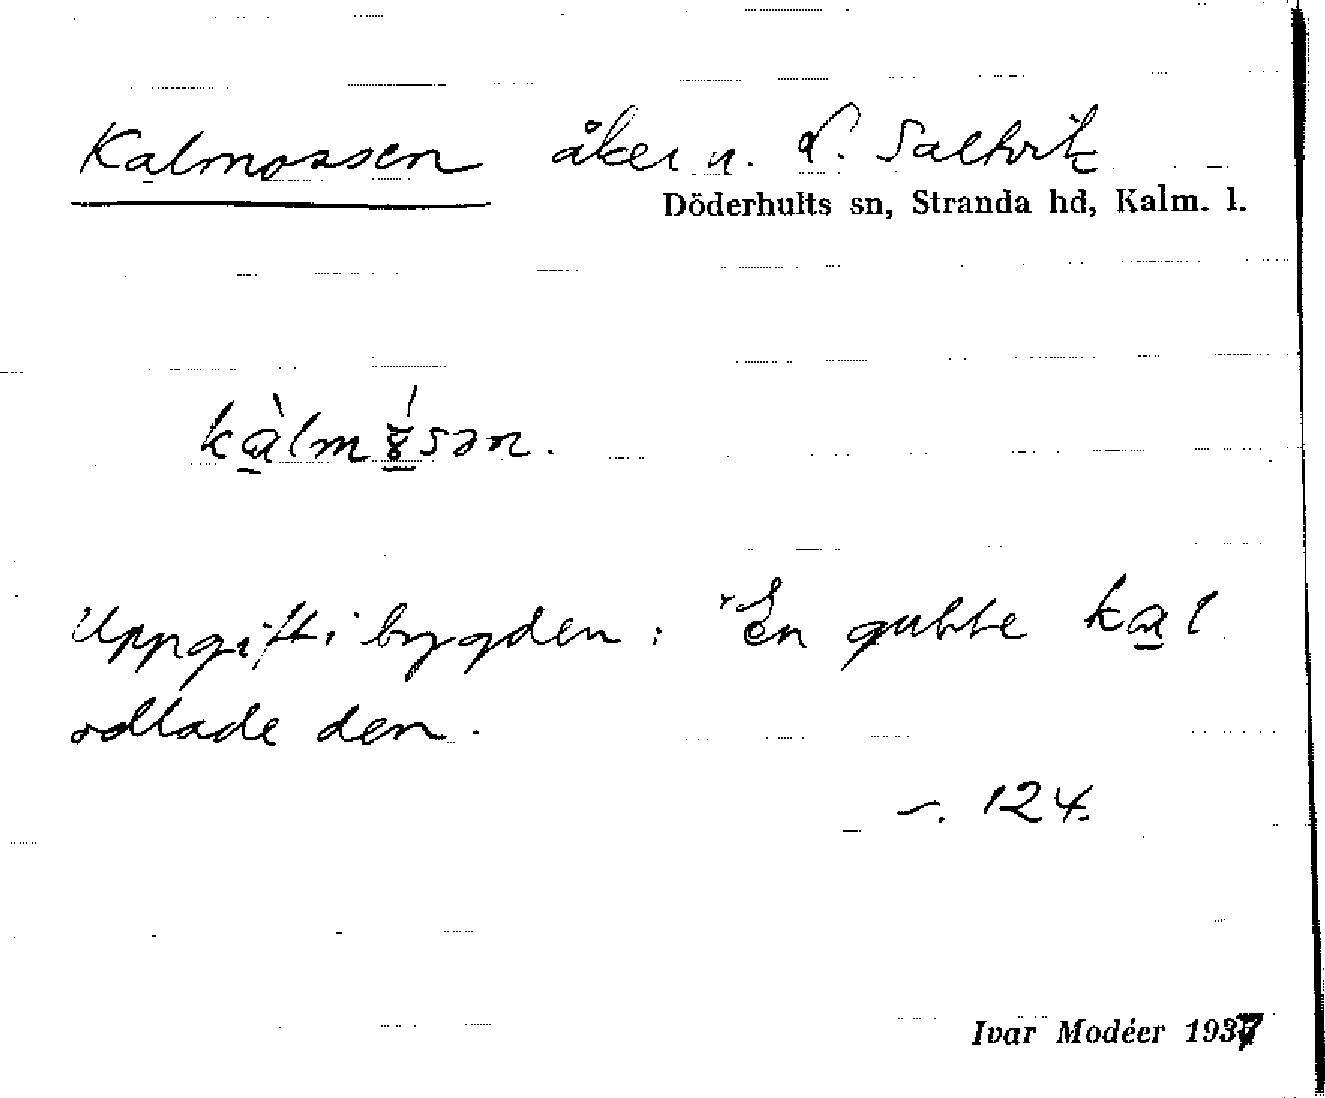 Kalmossen åker n. S. Saltvik
Döderhults sn, Stranda hd, Kalm. l.
kàlmɤ́sən.
Uppgift i bygden: "En gubbe kal
odlade den.
~. 124.
Ivar Modéer 1937